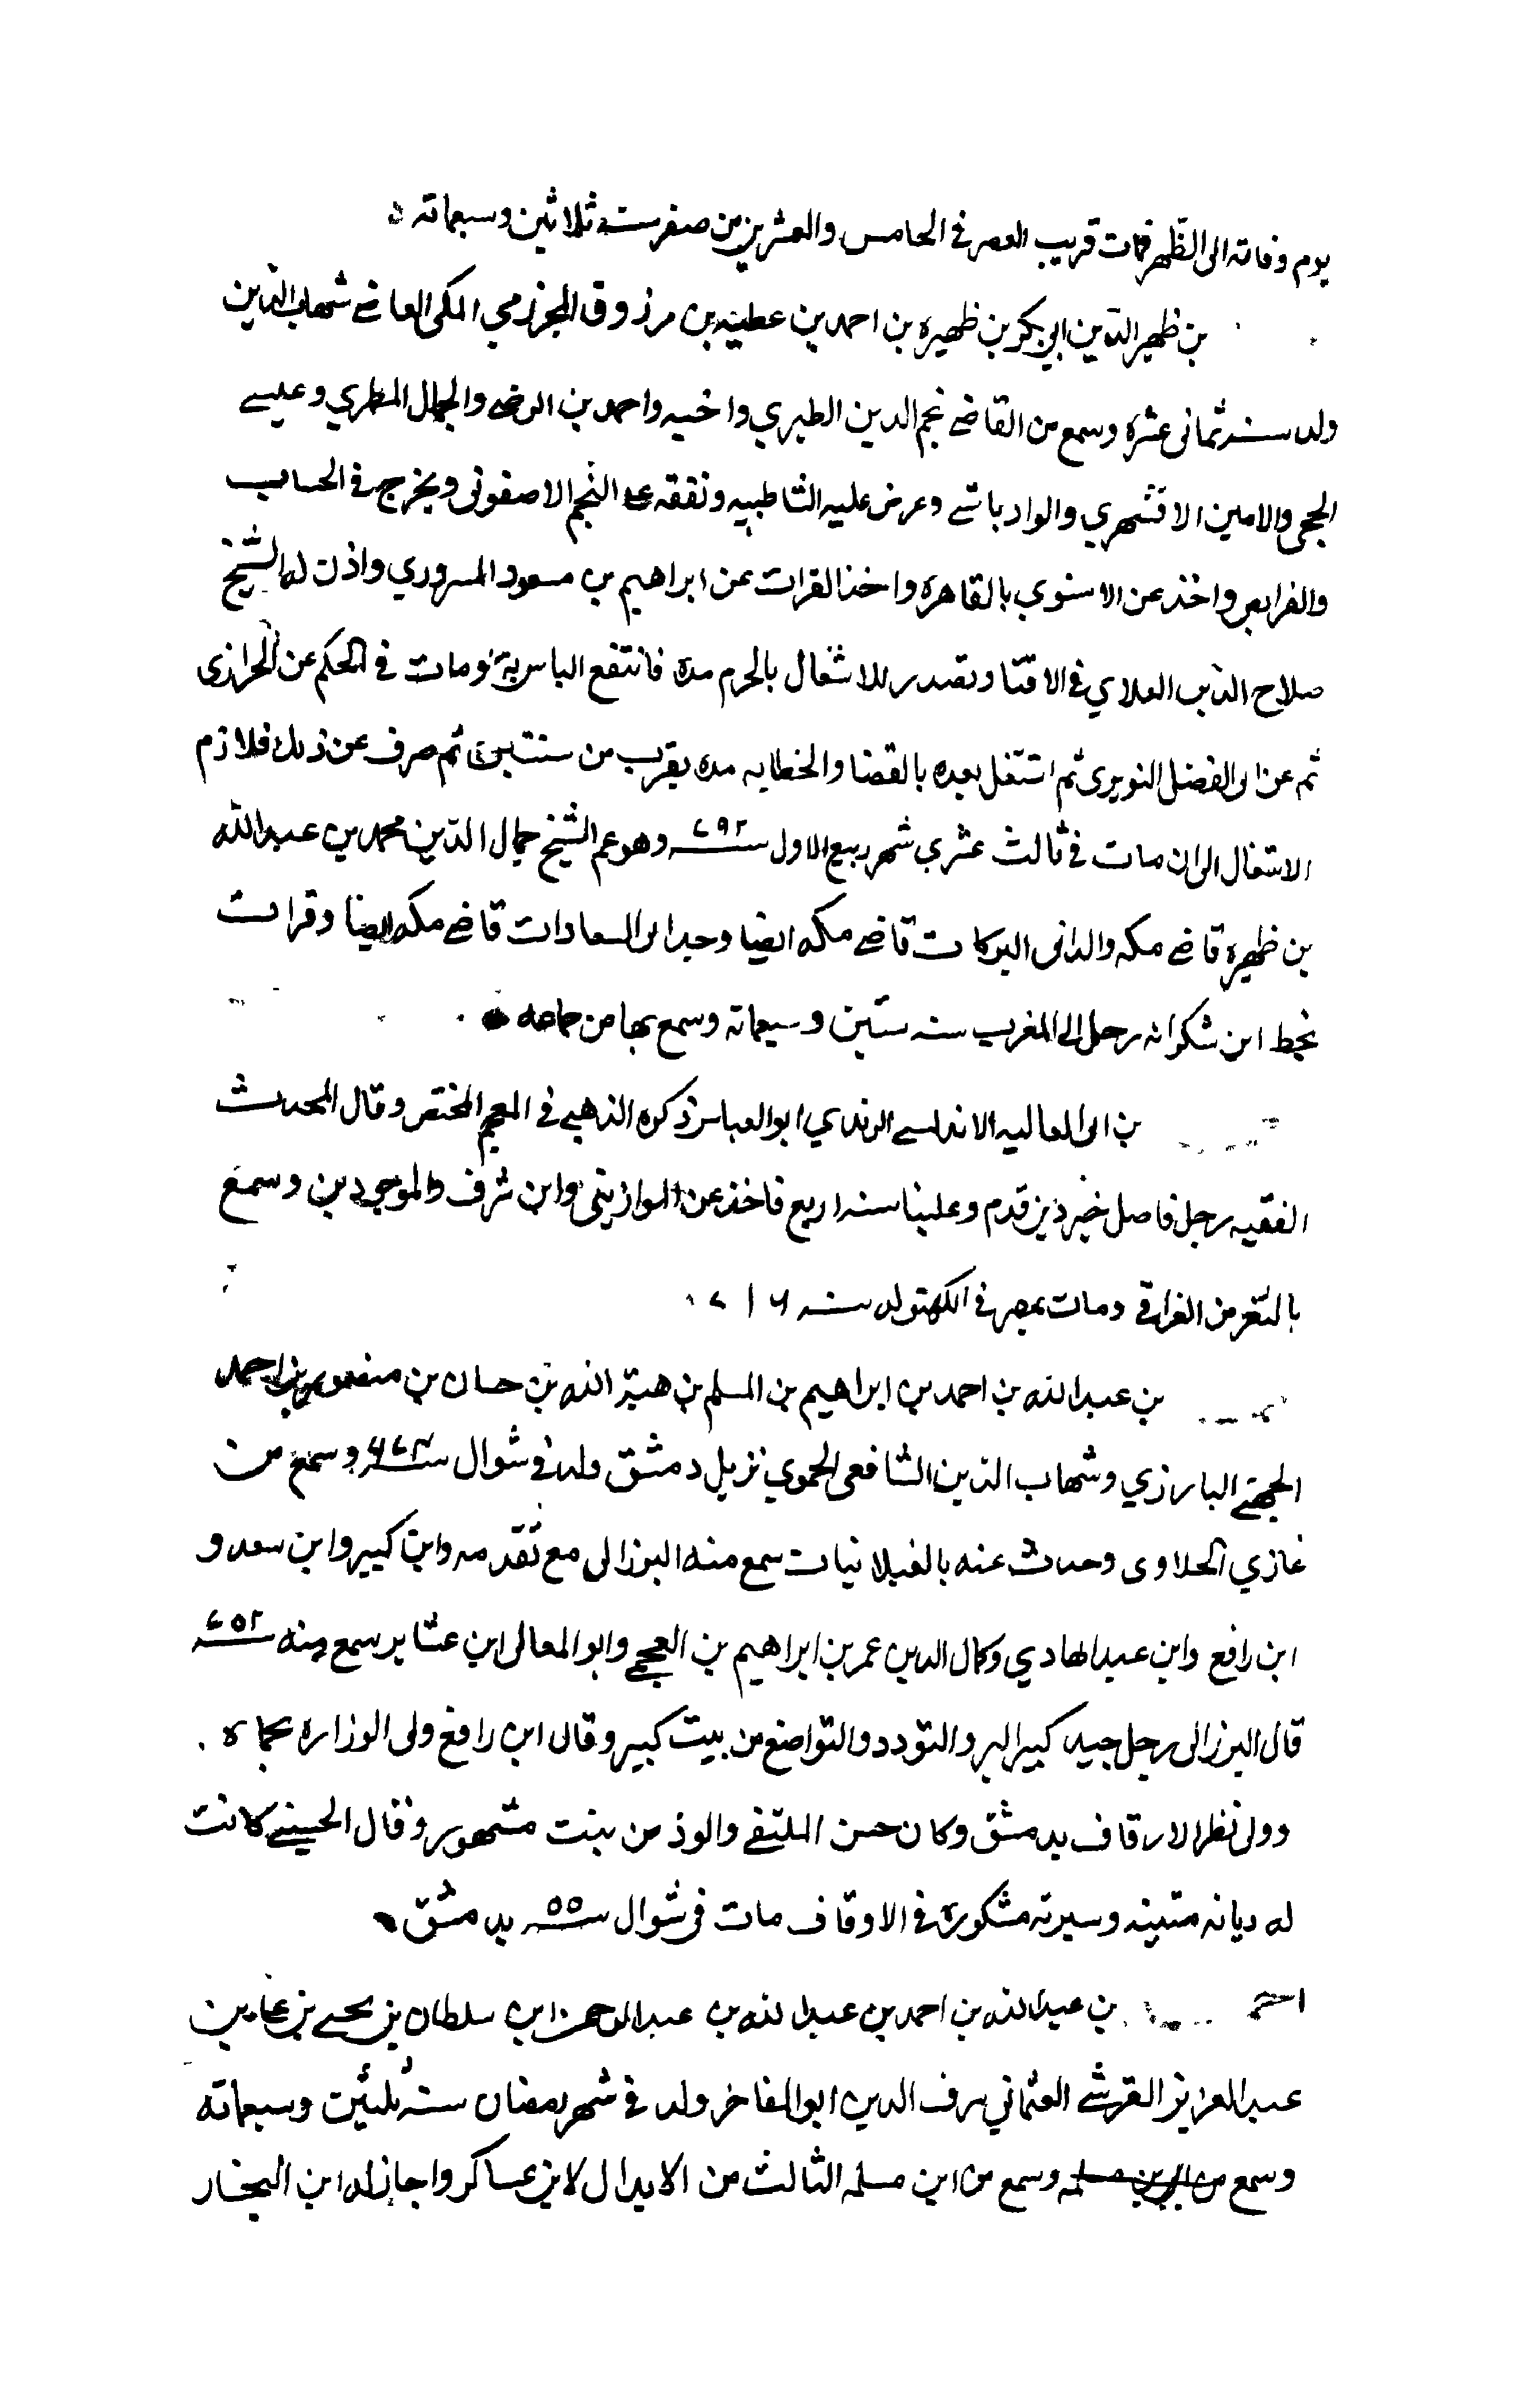 يوم وفاته الى الظهر فمات قريب العصر في الخامس والعشرين من صفر سنة ثلاثين وسبعمائة
بن ظهير الدين ابي بكر بن ظهيره بن احمد بن عطيه بن مرزوق المخزومي المكي القاضي شهاب الدين
ولد سنة ثماني عشره وسمع من القاضي نجم الدين الطبري واخيه واحمد بن الرضي والجمال المطري وعيسى
الحجي والامين الاقشهري والوادياشي وعرض عليه الشاطبيه وتفقه على النجم الاصفوني وتخرج في الحساب
والفرايض واخذ عن الاسنوي بالقاهره واخذ القرات عن ابراهيم بن مسعود المسروري واذن له الشيخ
صلاح الدين العلاي في الافتا وتصدر للاشغال بالحرم مدة فانتفع الناس به ومات في الحكم عن الحرازي
ثم عن ابي الفضل النويري ثم اشتغل بعده بالقضا والخطابه مده بقرب من سنتين ثم صرف عن ذلك فلازم
الاشغال الى ان مات في ثالث عشري شهر ربيع الاول سنة ٧٩٢ وهو عم الشيخ جمال الدين محمد بن عبد الله
بن ظهيره قاضي مكه والد ابي البركات قاضي مكه ايضا وجد ابي السعادات قاضي مكه ايضا وقرات
بخط ابن شكر انه رحل الى المغرب سنه ستين وسبعمائة وسمع بها من جماعه
بن ابي المعاليه الاندلسي الرندي ابو العباس ذكره الذهبي في المعجم المختص وقال المحدث
الفقيه رجل فاضل خير دين قدم علينا سنه اربع فاخذ عن الموازيني وابن شرف والموجودين وسمع
بالثغر من الغرافي ومات بمصر في الكهولة سنه ٧١٦
بن عبد الله بن احمد بن ابراهيم بن المسلم بن هبة الله بن حسان بن منصور بن احمد
الجهني البارزي وشهاب الدين الشافعي الحموي نزيل دمشق ولد في شوال سنة ٦٧٣ وسمع من
غازي الحلاوى وحدث عنه بالغيلانيات سمع منه البرزالى مع تقدمه وابن كثير وابن سعد و
ابن رافع وابن عبد الهادي وكمال الدين عمر بن ابراهيم بن العجمي وابو المعالى ابن عشاير سمع منه سنة ٧٥٢
قال البرزالى رجل جيد كبير البر والتودد والتواضع من بيت كبير وقال ابن رافع ولى الوزاره بحماه
وولى نظر الاوقاف بدمشق وكان حسن الملتقى والود من بيت مشهور وقال الحسيني كانت
له ديانه متينه وسيرته مشكوره في الاوقاف مات في شوال سنة ٥٥ بدمشق
احمد بن عبد الله بن احمد بن عبد الله بن عبد الرحمن ابن سلطان بن يحيى بن علي بن
عبد العزيز القرشي العثماني شرف الدين ابو المفاخر ولد في شهر رمضان سنة ثلثين وسبعمائه
وسمع من ابن مسلمه وسمع من ابن مسلمه الثالث من الابدال لابن عساكر واجاز له ابن البخار